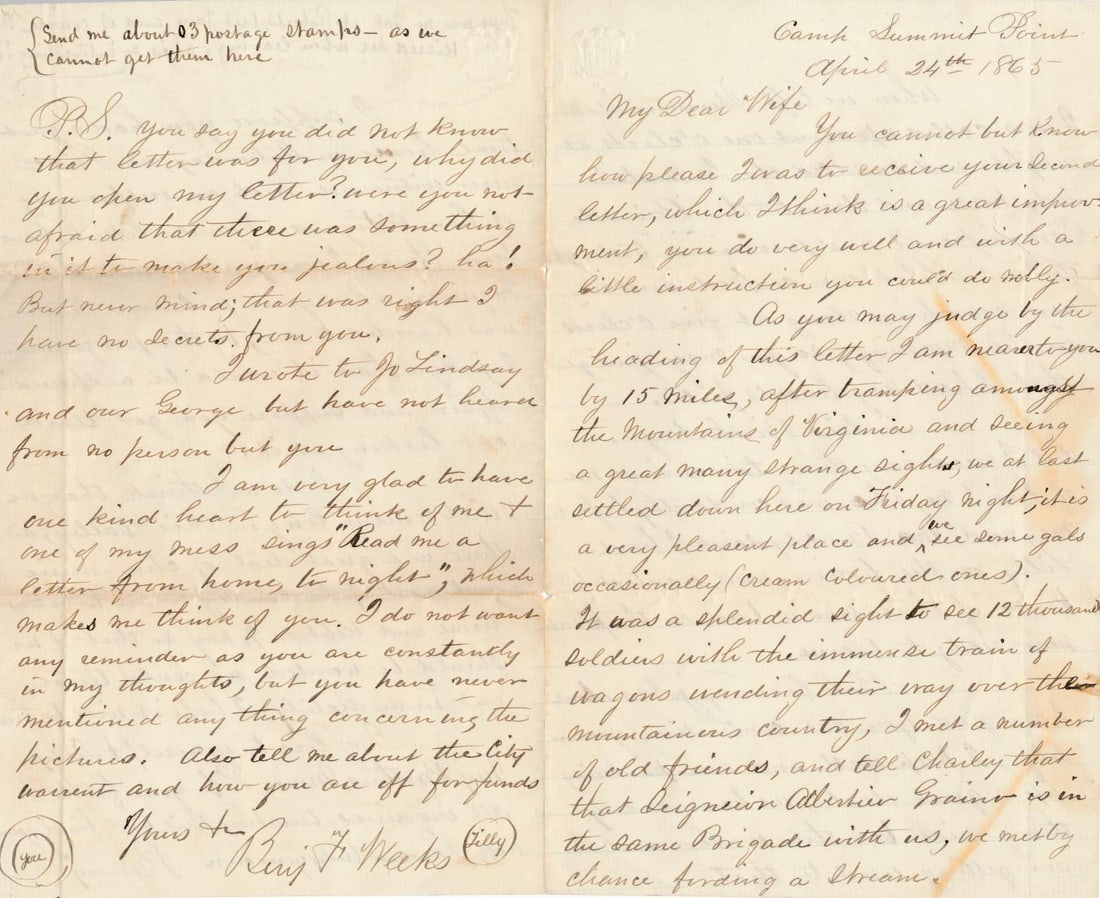 {Send me about 03 postage stamps — as we
cannot get them here
P.S. You say you did not know
that letter was for you, why did
you open my letter? were you not
afraid that there was something
in it to make you jealous? ha!
But never mind; that was right I
have no secrets from you.
I wrote to Jo Lindsay
and our George but have not heard
from no person but you
I am very glad to have
one kind heart to think of me +
one of my mess sings "Read me a
letter from home, to night", which
makes me think of you. I do not want
any reminder as you are constantly
in my thoughts, but you have never
mentioned any thing concerning the
pictures. Also tell me about the City
warrent and how you are off for funds
Yours &c
Benj F Weeks
(you)
(Tilly)
Camp Summit Point
April 24th 1865
My Dear Wife
You cannot but know
how please I was to receive your second
letter, which I think is a great improv-
ment, you do very well and with a
little instruction you could do nobly.
As you may judge by the
heading of this letter I am nearer to you
by 15 miles, after tramping amongst
the Mountains of Virginia and seeing
a great many strange sights, we at last
settled down here on Friday night, it is
a very pleasent place and we see some gals
occasionally (cream coloured ones).
It was a splendid sight to see 12 thousand
soldiers with the immense train of
wagons wending their way over the
mountaineous country, I met a number
of old friends, and tell Charley that
that is in
the same Brigade with us, we met by
chance fording a stream.